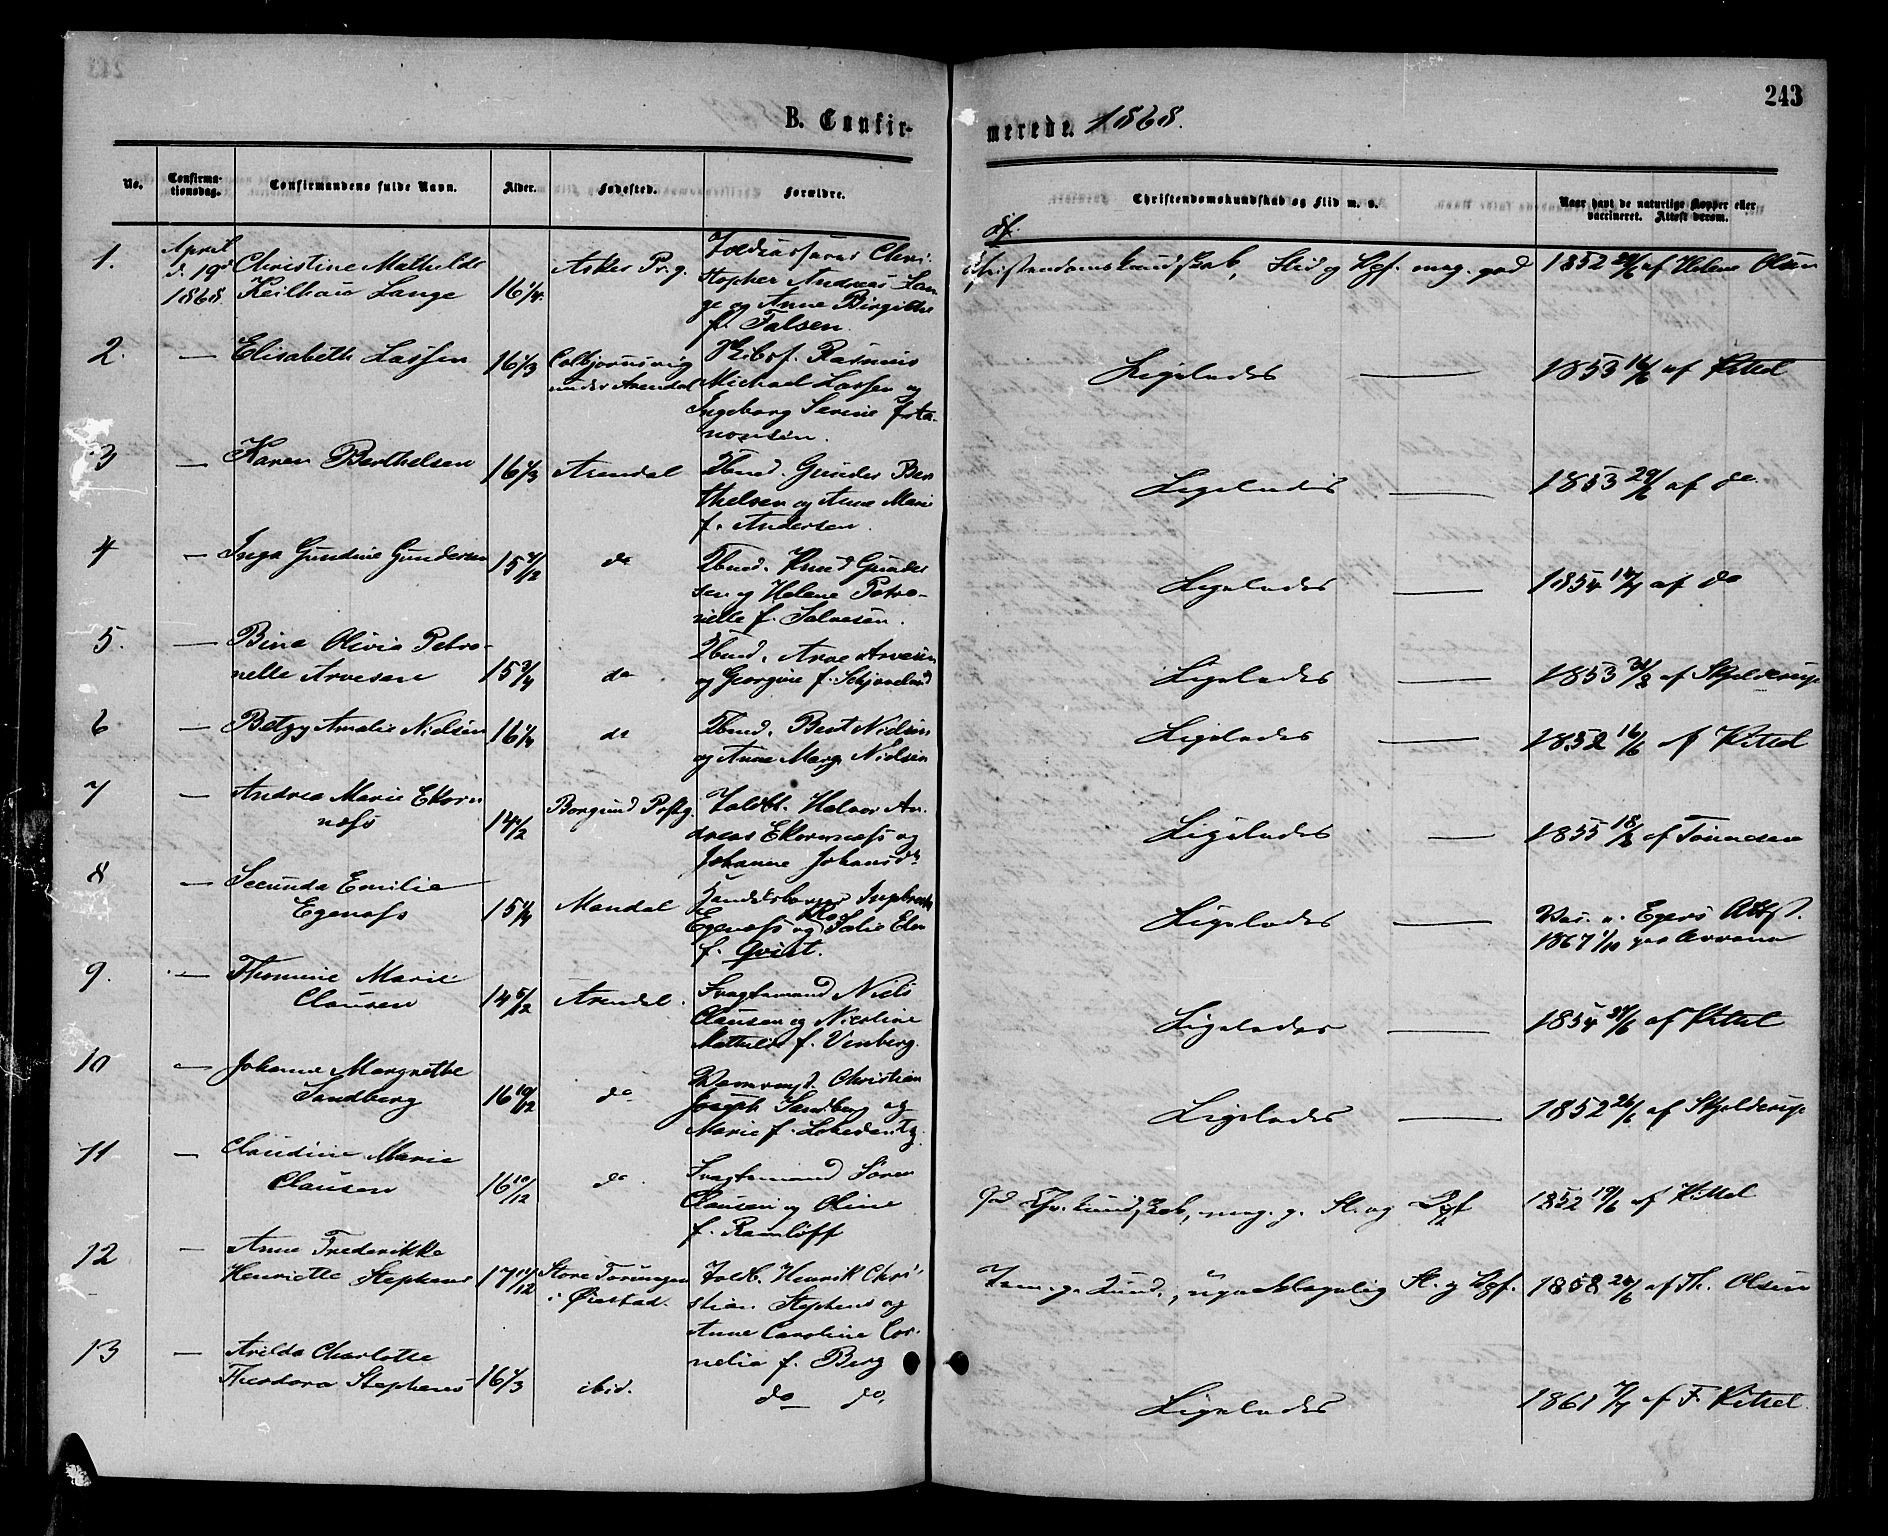 243
B. Confir-
merede. 1868.
No.
Confirma-
tionsdag.
Confirmandens fulde Navn.
Alder.
Fødested.
Forældre.
Christendomskundskab og Flid m. v.
Naar havt de naturlige Kopper eller
vaccineret. Attest derom.
1.
April
d. 19de
1868.
Christine Mathilde
Keilhau Lange
16 1/4
Asker Prg.
Toldcasserer Chri-
stopher Andreas Lan-
ge og Anne Birgitthe
f. Falsen.
Christendomskundskab, Flid og Opf. meg. god
1852 29/6 af Helene Olsen
2.
—
Elisabeth Lassen
16 1/3
Colbjørnsvig
under Arendal
Skibsf. Rasmus
Michael Lassen og
Ingeborg Serine f. Aa-
nonsen.
Ligeledes —
1853 16/6 af Kittel
3
—
Karen Berthelsen
16 1/3
Arendal
Tbmd. Gunder Ber
thelsen og Anne Marie
f. Andersen.
Ligeledes —
1853 29/6 af do
4
—
Inga Gundine Gundersen
15 7/12
do
Tbmd. Knud Gunder
sen og Helene Petro-
nelle f. Salvesen.
Ligeledes —
1854 14/7 af do
5.
—
Bina Olivia Petro-
nelle Arvesen
15 3/4
do
Tbmd. Arve Arvesen
og Georgine f. Schjoveland
Ligeledes —
1853 31/8 af Skjelderup
6
—
Betzy Amalie Nielsen
16 1/4
do
Tbmd. Bent Nielsen
og Anne Marg. Nielsen
Ligeledes —
1852 16/6 af Kittel
7
—
Andrea Marie Ekorn
næss
14 1/2
Borgund Prstg.
Toldbt. Halvor An-
dreas Ekornnæss og
Johanne Johansdt.
Ligeledes —
1855 18/8 af Tønnesen
8
—
Secunda Emilie
Egenæss
15 1/4
Mandal
Handelsborger Ingebreth
Egenæss og Talie Elen
f. Qvist.
Ligeledes —
Vac. e. Egers Attst.
1867 1/10
9.
—
Thomine Marie
Clausen
14 5/12
Arendal.
Fragtemand Niels
Clausen og Nicoline
Mathilde f. Venberg.
Ligeledes —
1854 28/6 af Kittel
10
—
Johanne Margrethe
Sandberg
16 10/12
do
Christian
Joseph Sandberg og
Marie f. Lobedantz.
Ligeledes —
1852 26/6 af Skjelderup
11
—
Claudine Marie
Clausen
16 10/12
do
Fragtemand Søren
Clausen og Oline
f. Ramløff
God Chr. kundskab, meg. g. Fl. og Opf
1852 19/6 af Kittel
12
—
Anne Frederikke
Henriette Stephens
17 11/12
Store Torungen
i Øiestad.
Toldb. Henrik Chri-
stian Stephens og
Anne Caroline Cor-
nelia f. Berg
Tem. g. Kund., upaaklagelig Fl. og Opf.
1858 24/6 af Th. Olsen
13
—
Arilda Charlotte
Theodora Stephens
16 1/3
ibid.
do do.
Ligeledes
1861 7/7 af F. Kittel.